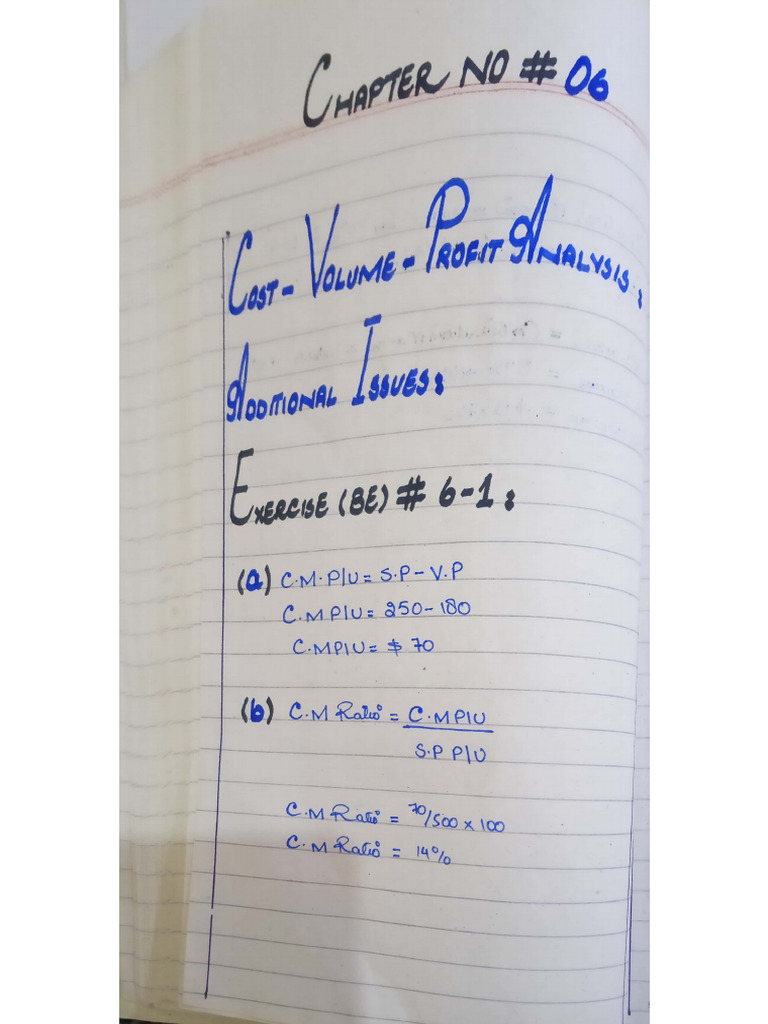 CHAPTER NO # 06
COST-VOLUME-PROFIT ANALYSIS:
ADDITIONAL ISSUES:
EXERCISE (BE) # 6-1:
(a) C.M.P/U = S.P - V.P
C.M P/U = 250 - 180
C.MP/U = $ 70
(b) C.M Ratio = C.MP/U
S.P P/U
C.M Ratio = 70/500 x 100
C.M Ratio = 14%